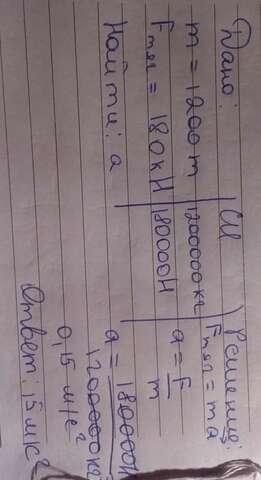 Дано:
m = 1200 т
Fтяг = 180 кН
Найти: a
СИ
1200000 кг
180000Н
Решение:
Fтяг = ma
a = F/m
a = 180000Н/1200000кг
0,15 м/с²
Ответ: 15 м/с²